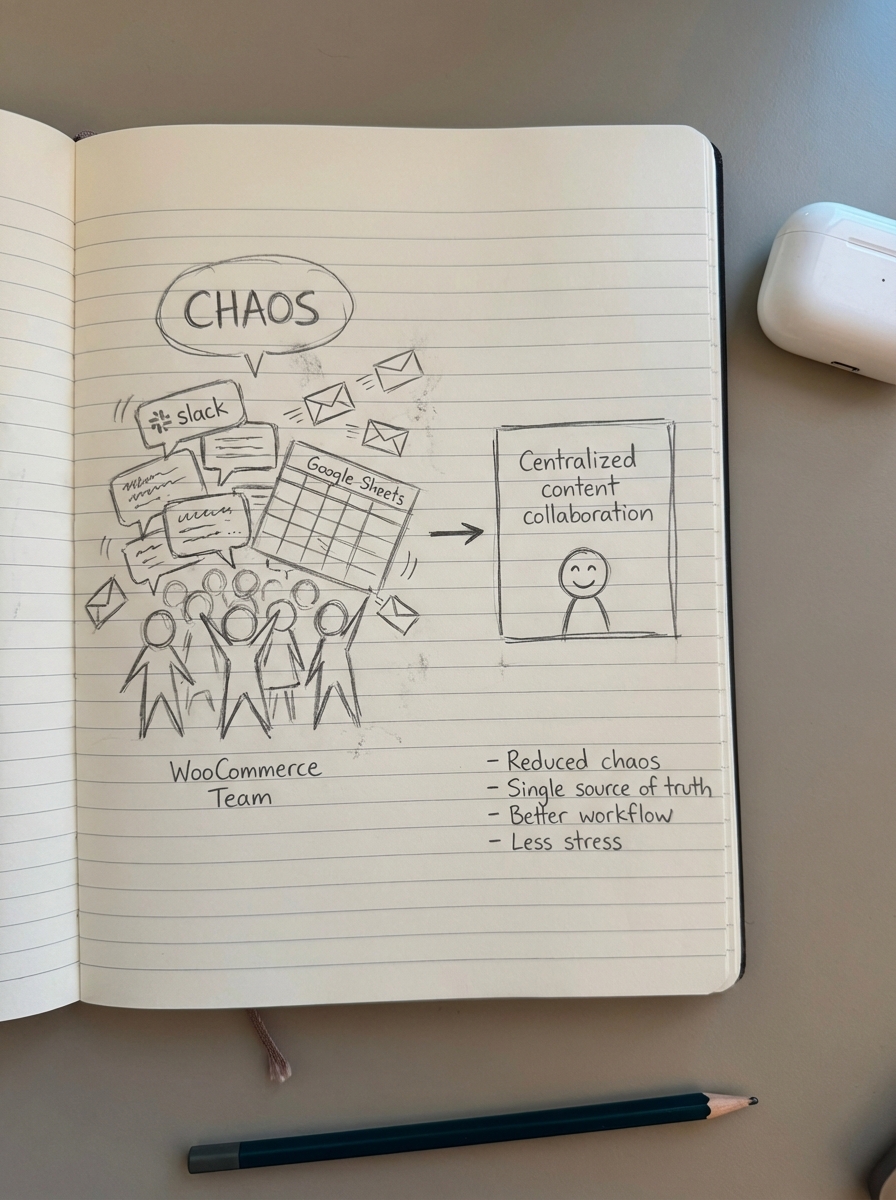 CHAOS
slack
Google Sheets
WooCommerce
Team
Centralized
content
collaboration
- Reduced chaos
- Single source of truth
- Better workflow
- Less stress